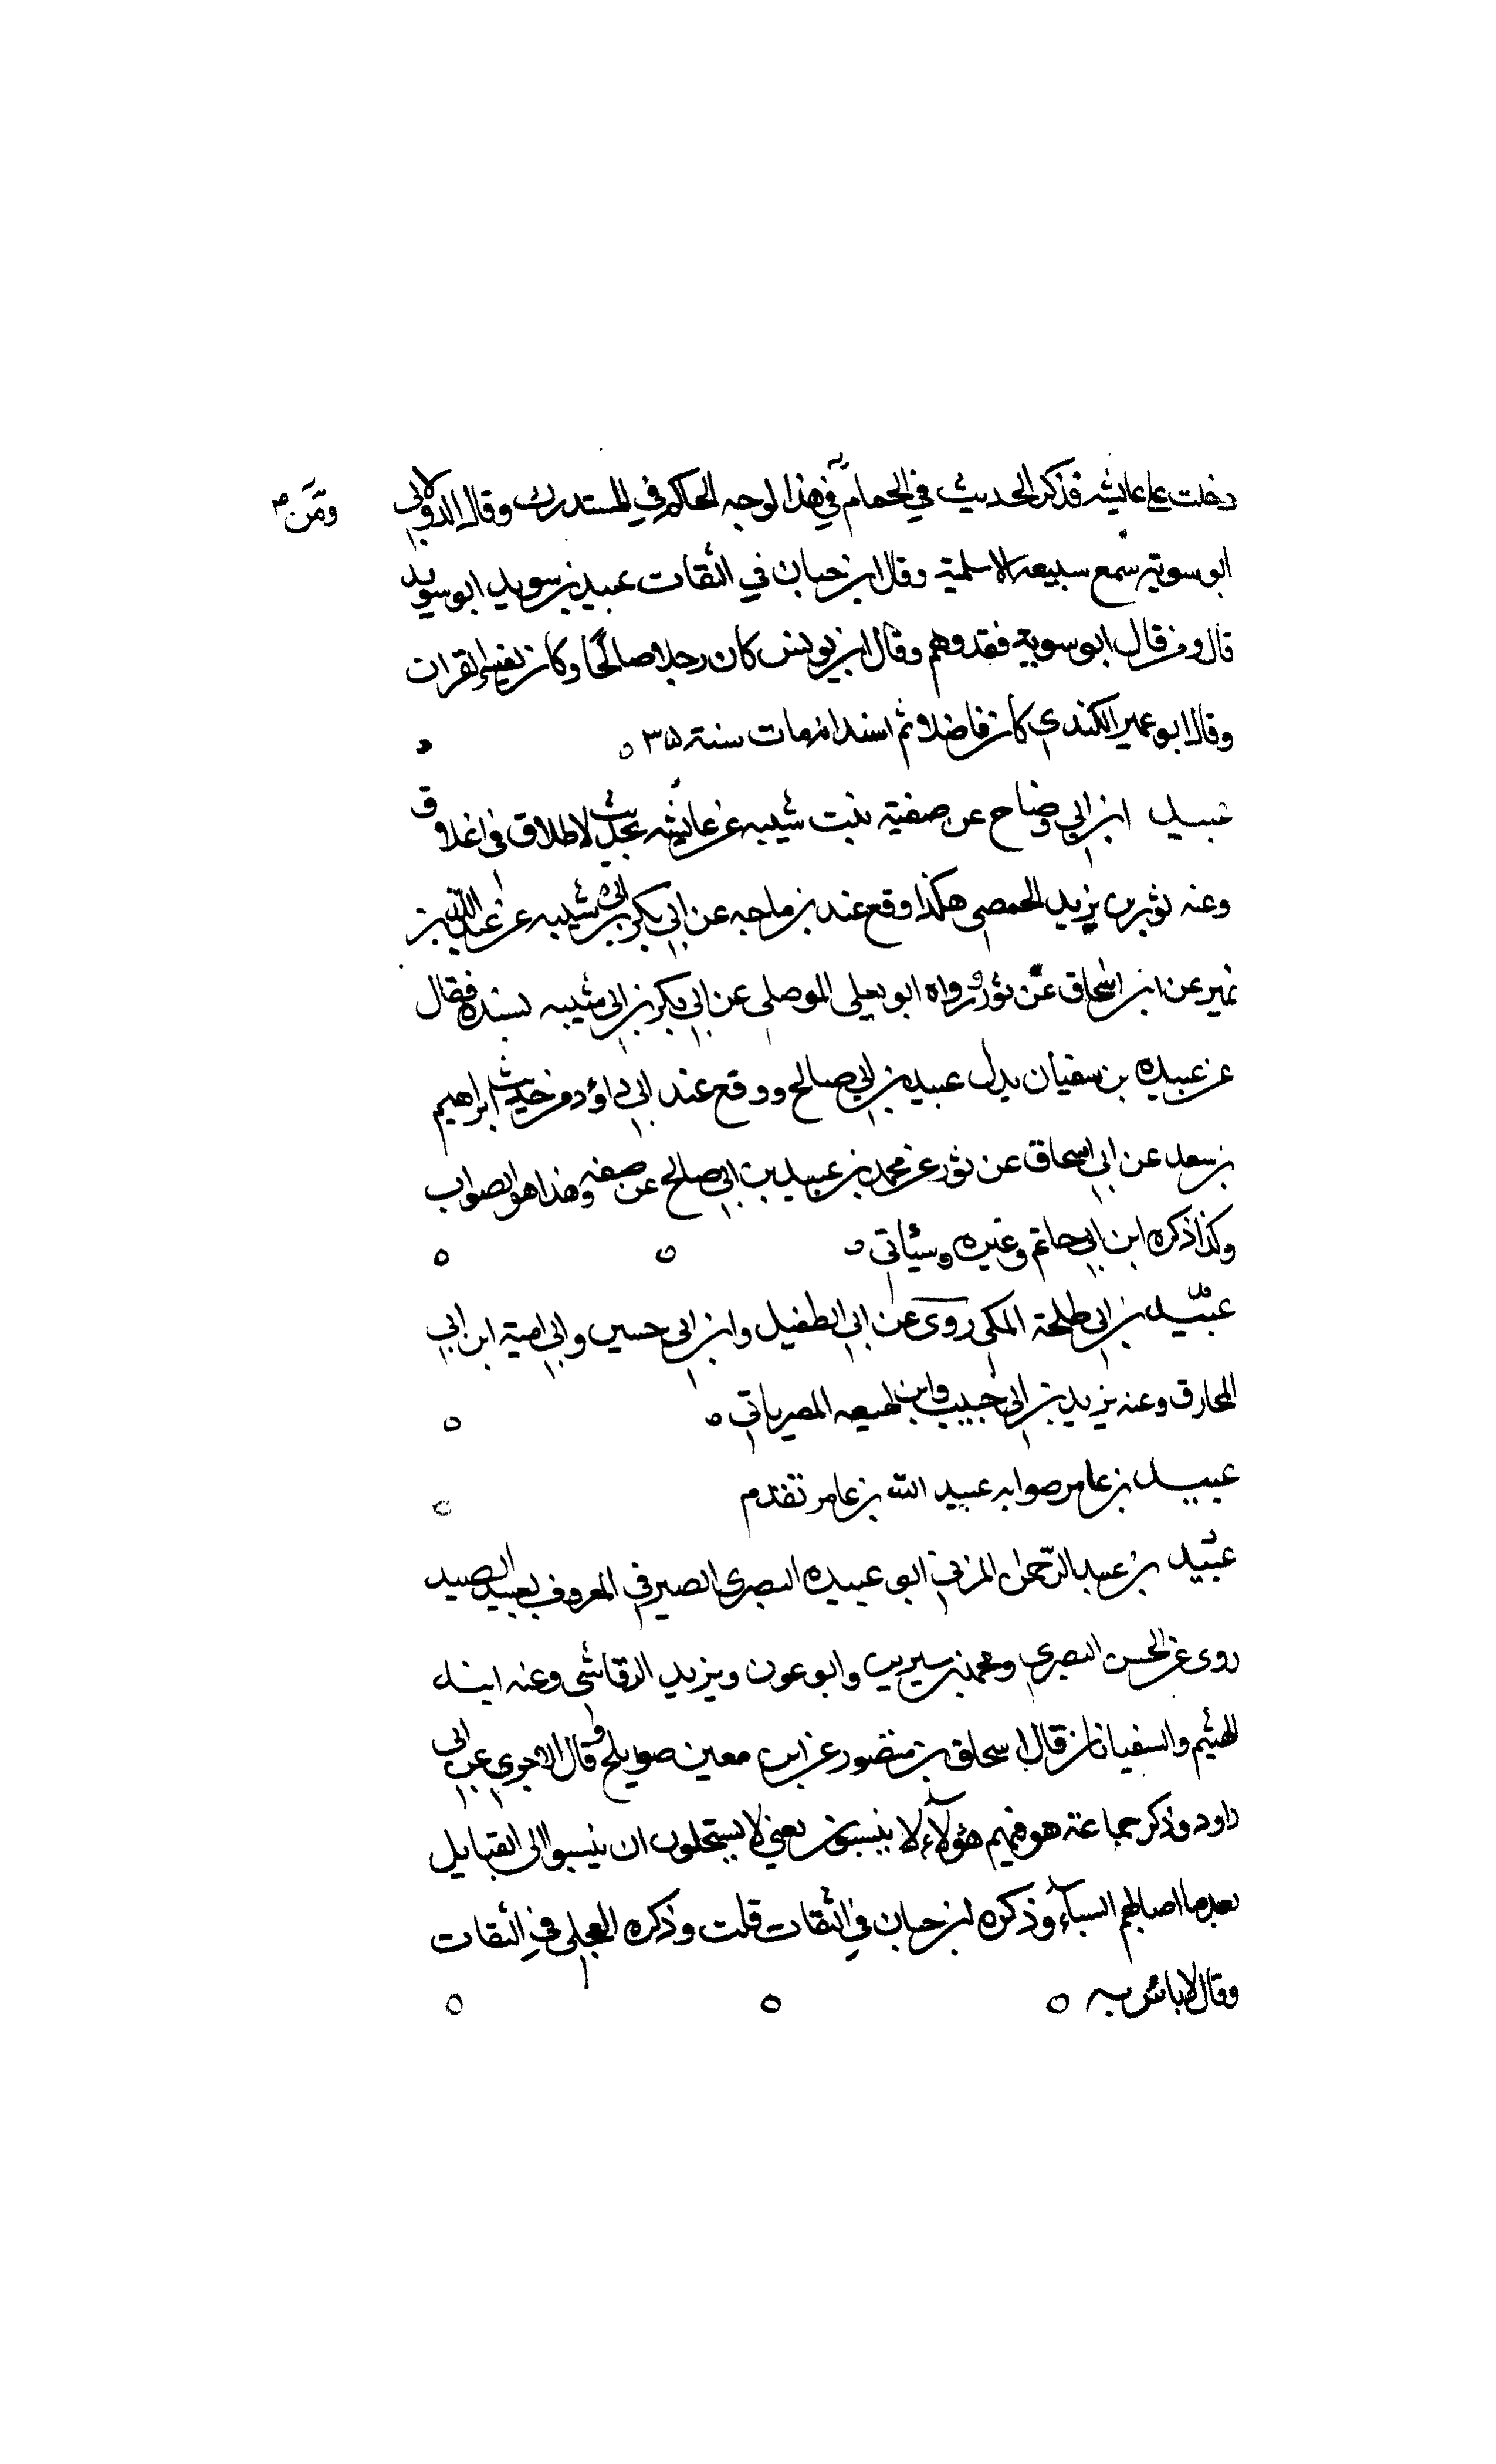 دخلت على عايشه فذكر الحديث في الحمام في هذا الوجه الحاكم في المستدرك وقال الدولابي
ومن
ابو سوية سمع سبيعة الاسلمية وقال ابن حبان في الثقات عبيد بن سويد ابو سويد
قال ومن قال ابو سوية فقد وهم وقال ابن يونس كان رجلا صالحا وكان يفسر القران
وقال ابو عمير الكندي كان فاضلا ثم اسند انه مات سنة ٣٥
عبيد ابن ابي وضاح عن صفية بنت شيبه عن عايشه بحديث لا طلاق في اغلاق
وعنه ثور بن يزيد الحمصي هكذا وقع عند بن ماجه عن ابي بكر بن ابي شيبه عن عبد الله بن
نمير عن ابن اسحاق عن ثور ورواه ابو يعلى الموصلي عن ابي بكر بن ابي شيبه بسنده فقال
عن عبيده بن سفيان بدل عبيد بن ابي صالح ووقع عند ابي داؤد من حديث ابراهيم
بن سعد عن ابي اسحاق عن ثور عن محمد بن عبيد بن ابي صالح عن صفيه وهذا هو الصواب
وكذا ذكره ابن ابي حاتم وغيره وسيأتي
عبيد بن ابي طلحة المكي روى عن ابي الطفيل وابن ابي حسين وابي امية ابن ابي
المخارق وعنه يزيد بن ابي حبيب وابن لهيعه المصرياتي
عبيد بن عامر صوابه عبيد الله بن عامر تقدم
عبيد بن عبد الرحمن المزني ابو عبيده البصري الصيرفي المعروف بعبيد الصيد
روى عن الحسن البصري ومحمد بن سيرين وابو عون ويزيد الرقاشي وعنه ابنه
الهيثم والسفيانان قال اسحاق بن منصور عن ابن معين صويلح وقال الاجري عن ابي
داود وذكر جماعة هو فيهم هؤلاء لا ينسبون يعني لا يستحلون ان ينسبوا الى القبايل
بعد ما اصابهم السباء وذكره ابن حبان في الثقات قلت وذكره العجلي في الثقات
وقال لا باس به